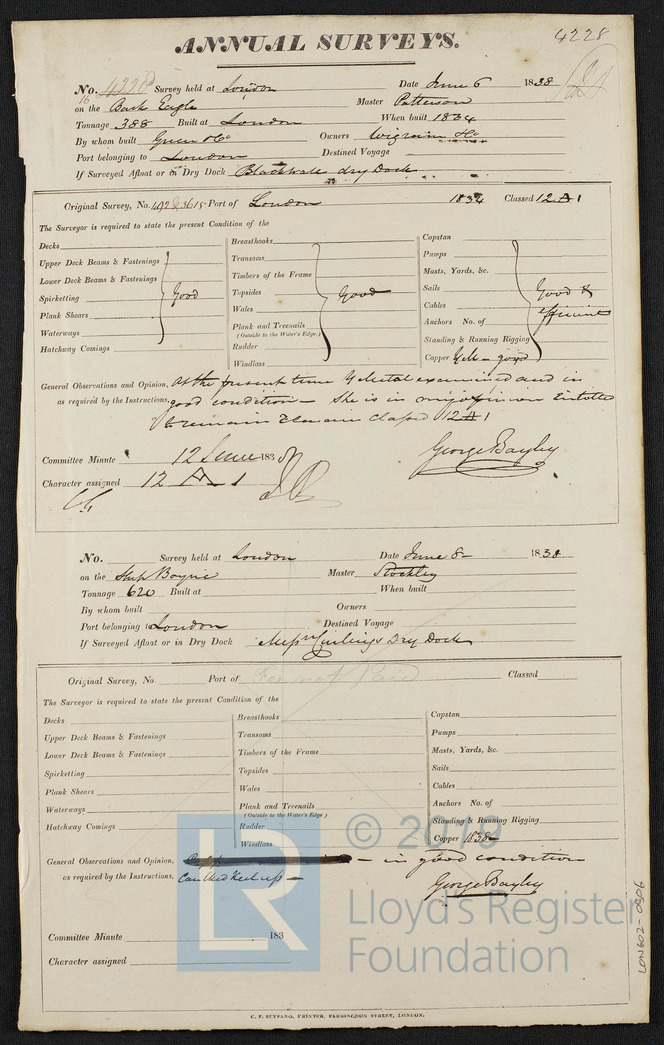 ANNUAL SURVEYS.
4228
No. 4228 Survey held at London Date June 6 1838
16
on the Bark Eagle Master Patterson
Tonnage 388 Built at London When built 1834
By whom built Green & Co Owners Wigram & Co
Port belonging to London Destined Voyage
If Surveyed Afloat or in Dry Dock Blackwall dry Dock
Original Survey, No. Port of London 1834 Classed 12 A 1
The Surveyor is required to state the present Condition of the
Decks
Upper Deck Beams & Fastenings
Lower Deck Beams & Fastenings
Spirketting Good
Plank Shears
Waterways
Hatchway Comings
Breasthooks
Transoms
Timbers of the Frame
Topsides Good
Wales
Plank and Treenails
(Outside to the Water's Edge.)
Rudder
Windlass
Capstan
Pumps
Masts, Yards, &c.
Sails Good &
Cables efficient
Anchors No. of
Standing & Running Rigging
Copper good
General Observations and Opinion, At the present time examined and in
as required by the Instructions. good condition - She is in my opinion Entitled
to remain classed 12 A 1
George Bayley
Committee Minute 12 June 1838
Character assigned 12 A 1
No. Survey held at London Date June 8 1838
on the Ship Boyne Master Stockley
Tonnage 620 Built at When built
By whom built Owners
Port belonging to London Destined Voyage
If Surveyed Afloat or in Dry Dock Messrs Curlings Dry Dock
Original Survey, No. Port of Fee not Paid Classed
The Surveyor is required to state the present Condition of the
Decks
Upper Deck Beams & Fastenings
Lower Deck Beams & Fastenings
Spirketting
Plank Shears
Waterways
Hatchway Comings
Breasthooks
Transoms
Timbers of the Frame
Topsides
Wales
Plank and Treenails
(Outside to the Water's Edge)
Rudder
Windlass
Capstan
Pumps
Masts, Yards, &c.
Sails
Cables
Anchors No. of
Standing & Running Rigging
Copper 1838
General Observations and Opinion, - in good condition
as required by the Instructions. Caulked
George Bayley
Committee Minute 183
Character assigned
C. F. SEYFANG, PRINTER, FARRINGDON STREET, LONDON.
LON602-0406
LR
© 2019
Lloyd's Register
Foundation